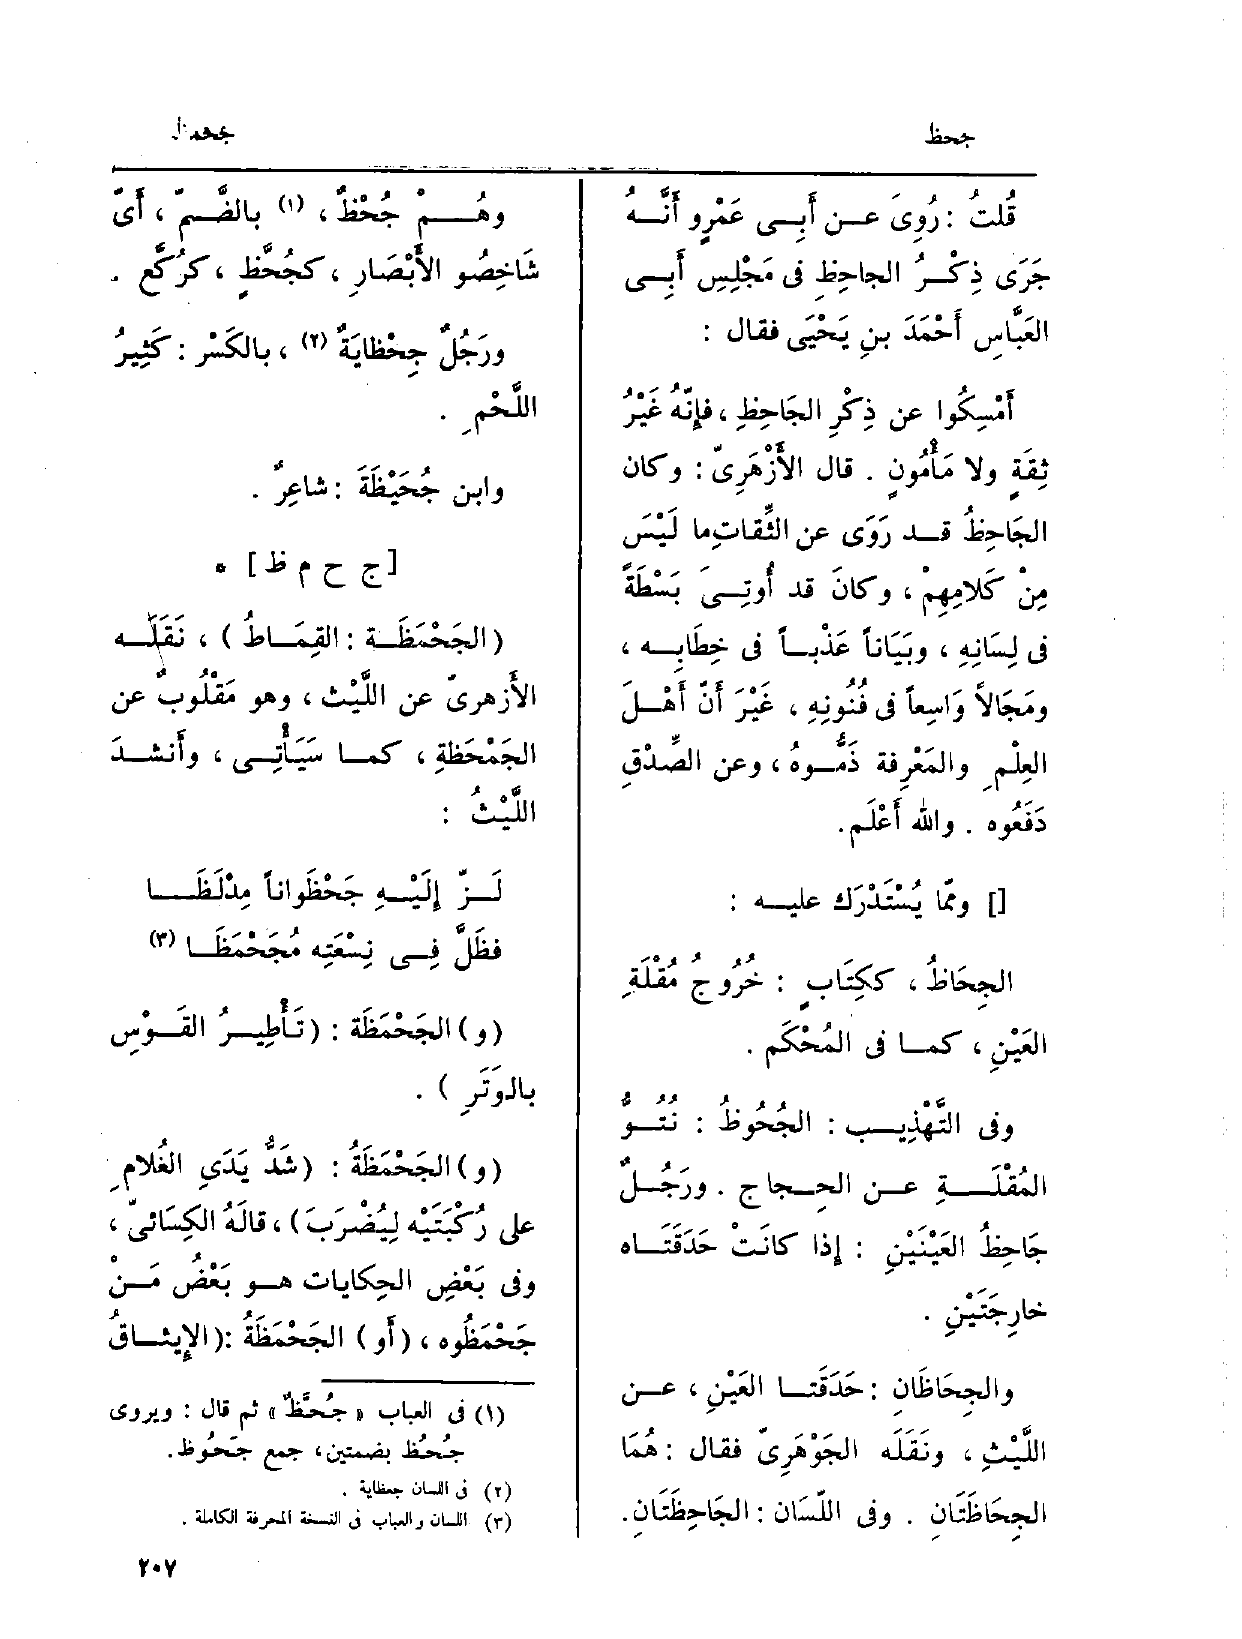 جحظ
جحمظ
قُلتُ : رُوِىَ عــن أَبِــى عَمْرٍو أَنَّــهُ
جَرَى ذِكْــرُ الجاحِظِ فى مَجْلِسِ أَبِــى
العَبَّاسِ أَحْمَدَ بنِ يَحْيَى فقال :
أَمْسِكُوا عن ذِكْرِ الجَاحِظِ ، فإِنَّهُ غَيْرُ
ثِقَةٍ ولا مَأْمُونٍ . قال الأَزْهَرِىّ : وكان
الجَاحِظُ قــد رَوَى عن الثِّقاتِ ما لَيْسَ
مِنْ كَلامِهِمْ ، وكانَ قد أُوتِــىَ بَسْطَةً
فى لِسَانِهِ ، وبَيَاناً عَذْبــاً فى خِطَابِــه ،
ومَجَالاً وَاسِعاً فى فُنُونِهِ ، غَيْرَ أَنّ أَهْــلَ
العِلْمِ والمَعْرِفة ذَمُّــوهُ ، وعن الصِّدْقِ
دَفَعُوه . والله أَعْلَم.
[] وممّا يُسْتَدْرَك عليــه :
الجِحَاظُ ، ككِتَابٍ : خُرُوجُ مُقْلَةِ
العَيْنِ ، كمــا فى المُحْكَم .
وفى التَّهْذِيــب : الجُحُوظُ : نُتُــوُّ
المُقْلَــةِ عــن الحِــجاج . ورَجُــلٌ
جَاحِظُ العَيْنَيْنِ : إِذا كانَتْ حَدَقَتَــاه
خارِجَتَيْنِ .
والجِحَاظَانِ : حَدَقَتــا العَيْنِ ، عــن
اللَّيْثِ ، ونَقَلَه الجَوْهَرِىّ فقال : هُمَا
الجِحَاظَتَانِ . وفى اللِّسَان : الجَاحِظَتَانِ.
وهُــمْ جُحْظٌ ، (١) بالضَّــمّ ، أَىْ
شَاخِصُو الأَبْصَارِ ، كجُحَّظٍ ، كرُكَّعٍ .
ورَجُلٌ جِحْظايَةٌ (٢) ، بالكَسْر : كَثِيرُ
اللَّحْمِ .
وابن جُحَيْظَةَ : شاعِرٌ .
[ج ح م ظ] *
(الجَحْمَظَــة : القِمَــاطُ) ، نَقَلَــه
الأَزهرىّ عن اللَّيْث ، وهو مَقْلُوبٌ عن
الجَمْحَظةِ ، كمــا سَيَأْتِــى ، وأَنشــدَ
اللَّيْثُ :
لَــزّ إِلَيْــهِ جَحْظَواناً مِدْلَظَــا
فظَلَّ فِــى نِسْعَتِه مُجَحْمَظَــا (٣)
(و) الجَحْمَظَة : (تَأْطِيــرُ القَــوْسِ
بالوَتَرِ ) .
(و) الجَحْمَظَةُ : (شَدُّ يَدَىِ الغُلامِ
على رُكْبَتَيْه لِيُضْرَبَ) ، قالَهُ الكِسَائىّ ،
وفى بَعْضِ الحِكايات هــو بَعْضُ مَــنْ
جَحْمَظُوه ، (أَو) الجَحْمَظَةُ : (الإِيثــاقُ
(١) فى العباب « جُحَّظٌ » ثم قال : ويروى
جُحُظ بضمتين، جمع جَحُوظ.
(٢) فى اللسان جحظاية .
(٣) اللسان والعباب فى النسخة المحرفة الكاملة .
٢٠٧